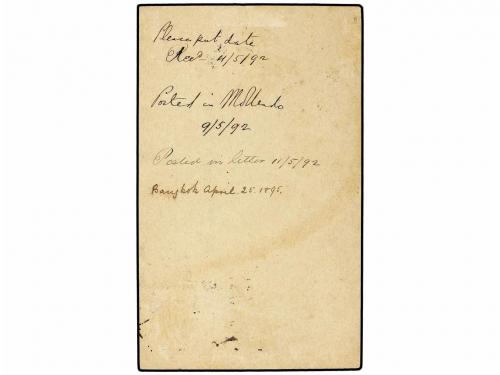 Please put date
Recd 4/5/92
Posted in Mollendo
9/5/92
Posted in letter 11/5/92
Bangkok April 25. 1895.